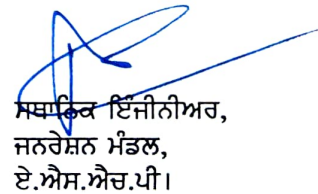 ਸਥਾਨਿਕ ਇੰਜੀਨੀਅਰ,
ਜਨਰੇਸ਼ਨ ਮੰਡਲ,
ਏ.ਐਸ.ਐਚ.ਪੀ।